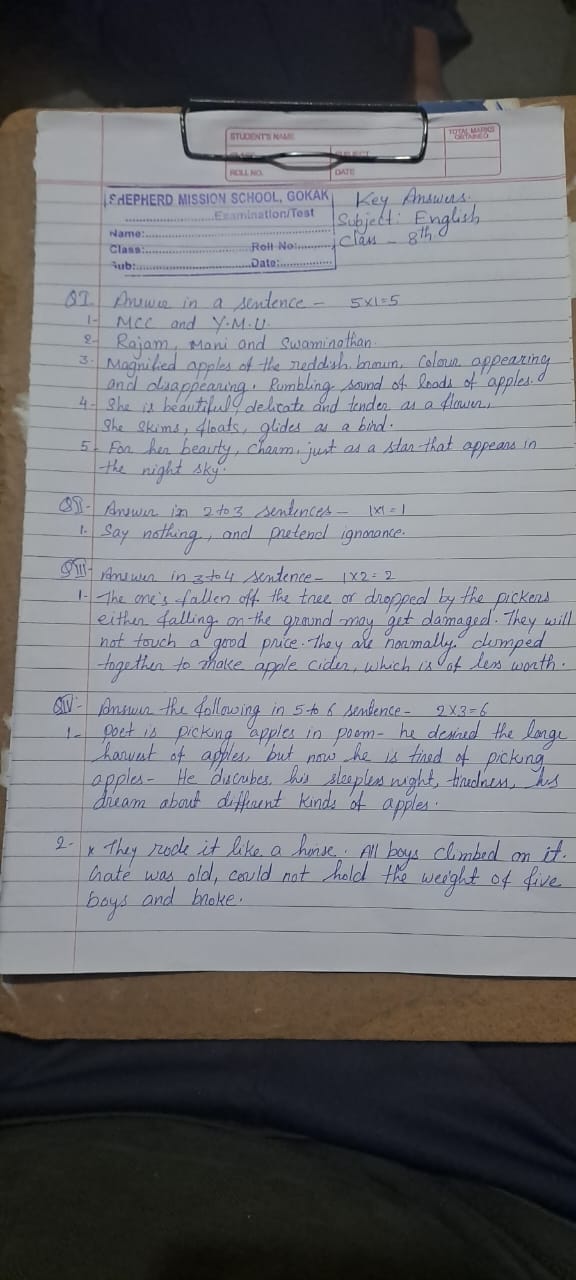 STUDENT'S NAME
TOTAL MARKS OBTAINED
SUBJECT
ROLL NO.
DATE
SHEPHERD MISSION SCHOOL, GOKAK
Key Answers.
Examination/Test
Subject: English
Name:
Class - 8th
Class: Roll No:
Sub: Date:
QI. Answer in a sentence - 5x1=5
1- MCC and Y.M.U.
2- Rajam, Mani and Swaminathan.
3. Magnified apples of the reddish brown, Colour appearing
and disappearing. Rumbling sound of loads of apples.
4- She is beautiful, delicate and tender as a flower,
She skims, floats, glides as a bird.
5- For her beauty, charm, just as a star that appears in
the night sky.
QII- Answer in 2 to 3 sentences - 1x1=1
1. Say nothing, and pretend ignorance.
QIII- Answer in 3 to 4 sentence - 1x2=2
1- The one's fallen off the tree or dropped by the pickers
either falling on the ground may get damaged. They will
not touch a good price. They are normally, clumped
together to make apple cider, which is of less worth.
QIV- Answer the following in 5 to 6 sentence - 2x3=6
1- Poet is picking apples in poem- he desired the large
harvest of apples, but now he is tired of picking
apples- He discribes his sleepless night, tiredness, his
dream about different kinds of apples.
2- x They rode it like a horse. All boys climbed on it.
Gate was old, could not hold the weight of five
boys and broke.